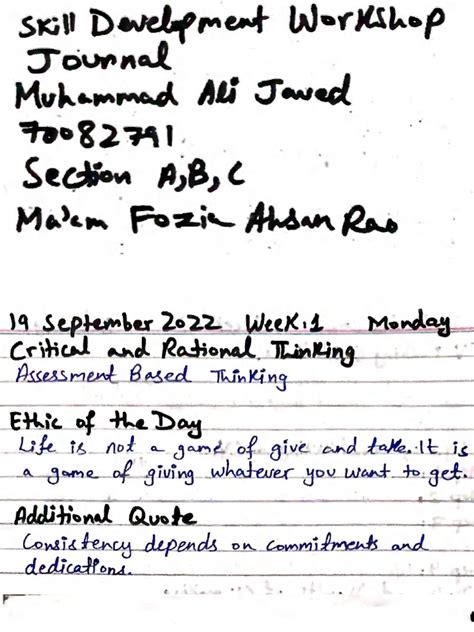 Skill Development Workshop
Journal
Muhammad Ali Javed
70082791
Section A,B,C
Ma'am Fozia Ahsan Rao
19 September 2022 Week:1 Monday
Critical and Rational Thinking
Assessment Based Thinking
Ethic of the Day
Life is not a game of give and take. It is
a game of giving whatever you want to get.
Additional Quote
Consistency depends on commitments and
dedications.